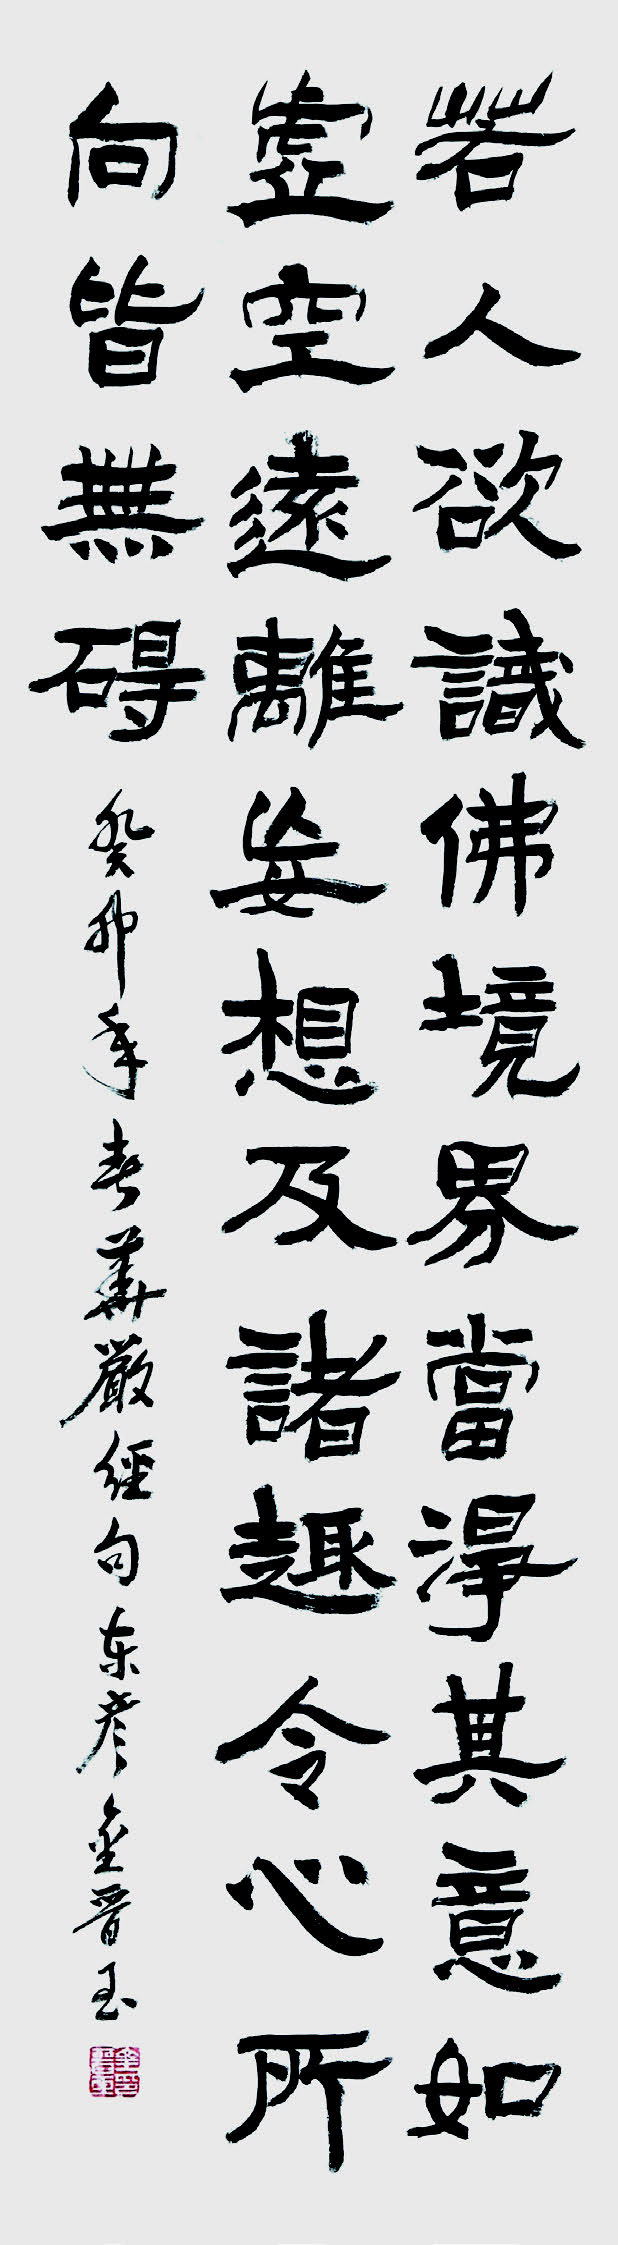 若人欲識佛境界當淨其意如
虛空遠離妄想及諸趣令心所
向皆無碍
癸卯年春華嚴經句东彦金晋玉